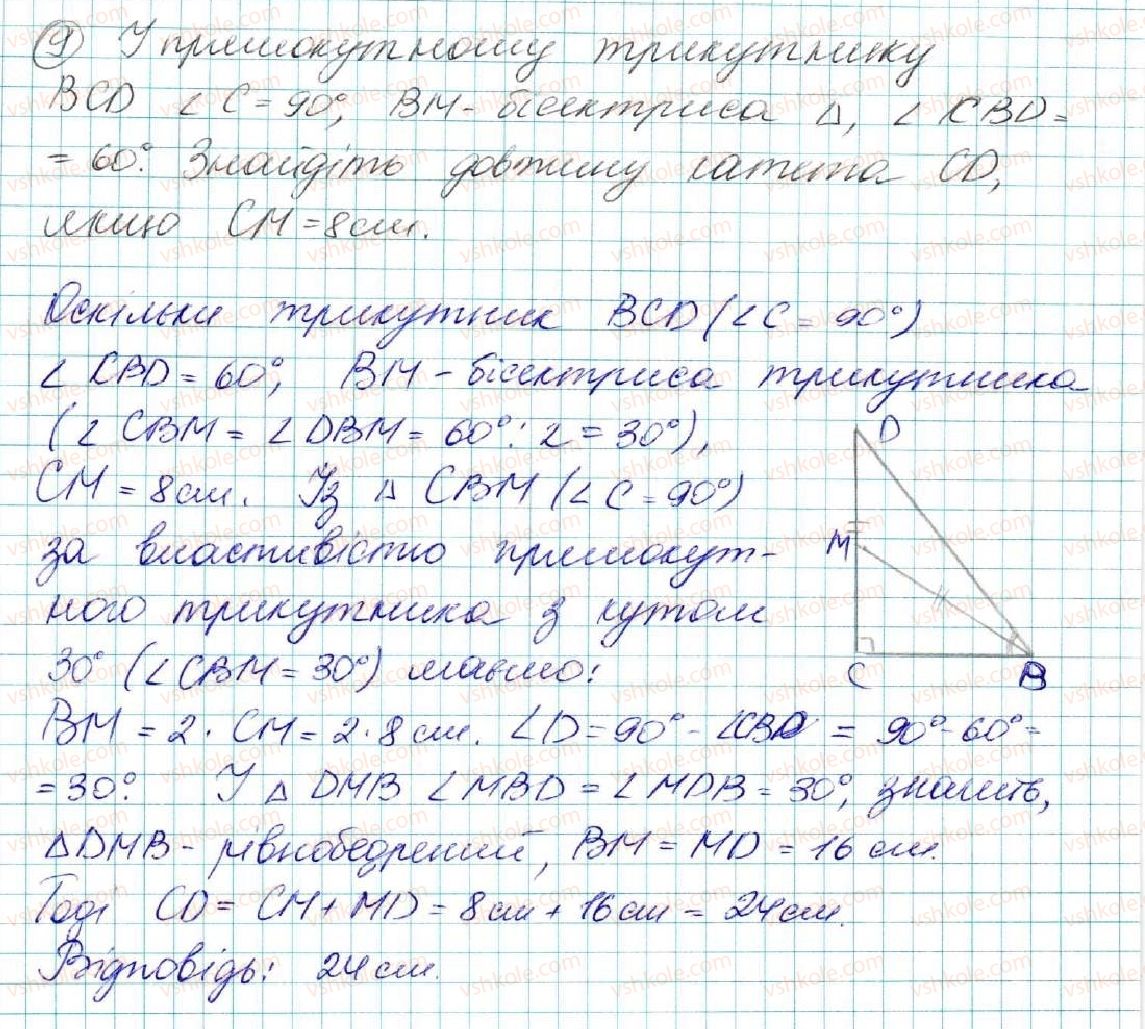 9 У прямокутному трикутнику
BCD ∠C = 90°, BM - бісектриса Δ, ∠CBD =
= 60°. Знайдіть довжину катета CD,
якщо CM = 8 см.
Оскільки трикутник BCD (∠C = 90°)
∠CBD = 60°, BM - бісектриса трикутника
(∠CBM = ∠DBM = 60° : 2 = 30°),
CM = 8 см. Із Δ CBM (∠C = 90°)
за властивістю прямокут-
ного трикутника з кутом
30° (∠CBM = 30°) маємо:
BM = 2 · CM = 2 · 8 см. ∠D = 90° - ∠CBD = 90° - 60° =
= 30°. У Δ DMB ∠MBD = ∠MDB = 30°, значить,
ΔDMB - рівнобедрений, BM = MD = 16 см.
Тоді CD = CM + MD = 8 см + 16 см = 24 см.
Відповідь: 24 см.
D
M
C
B
vshkole.com